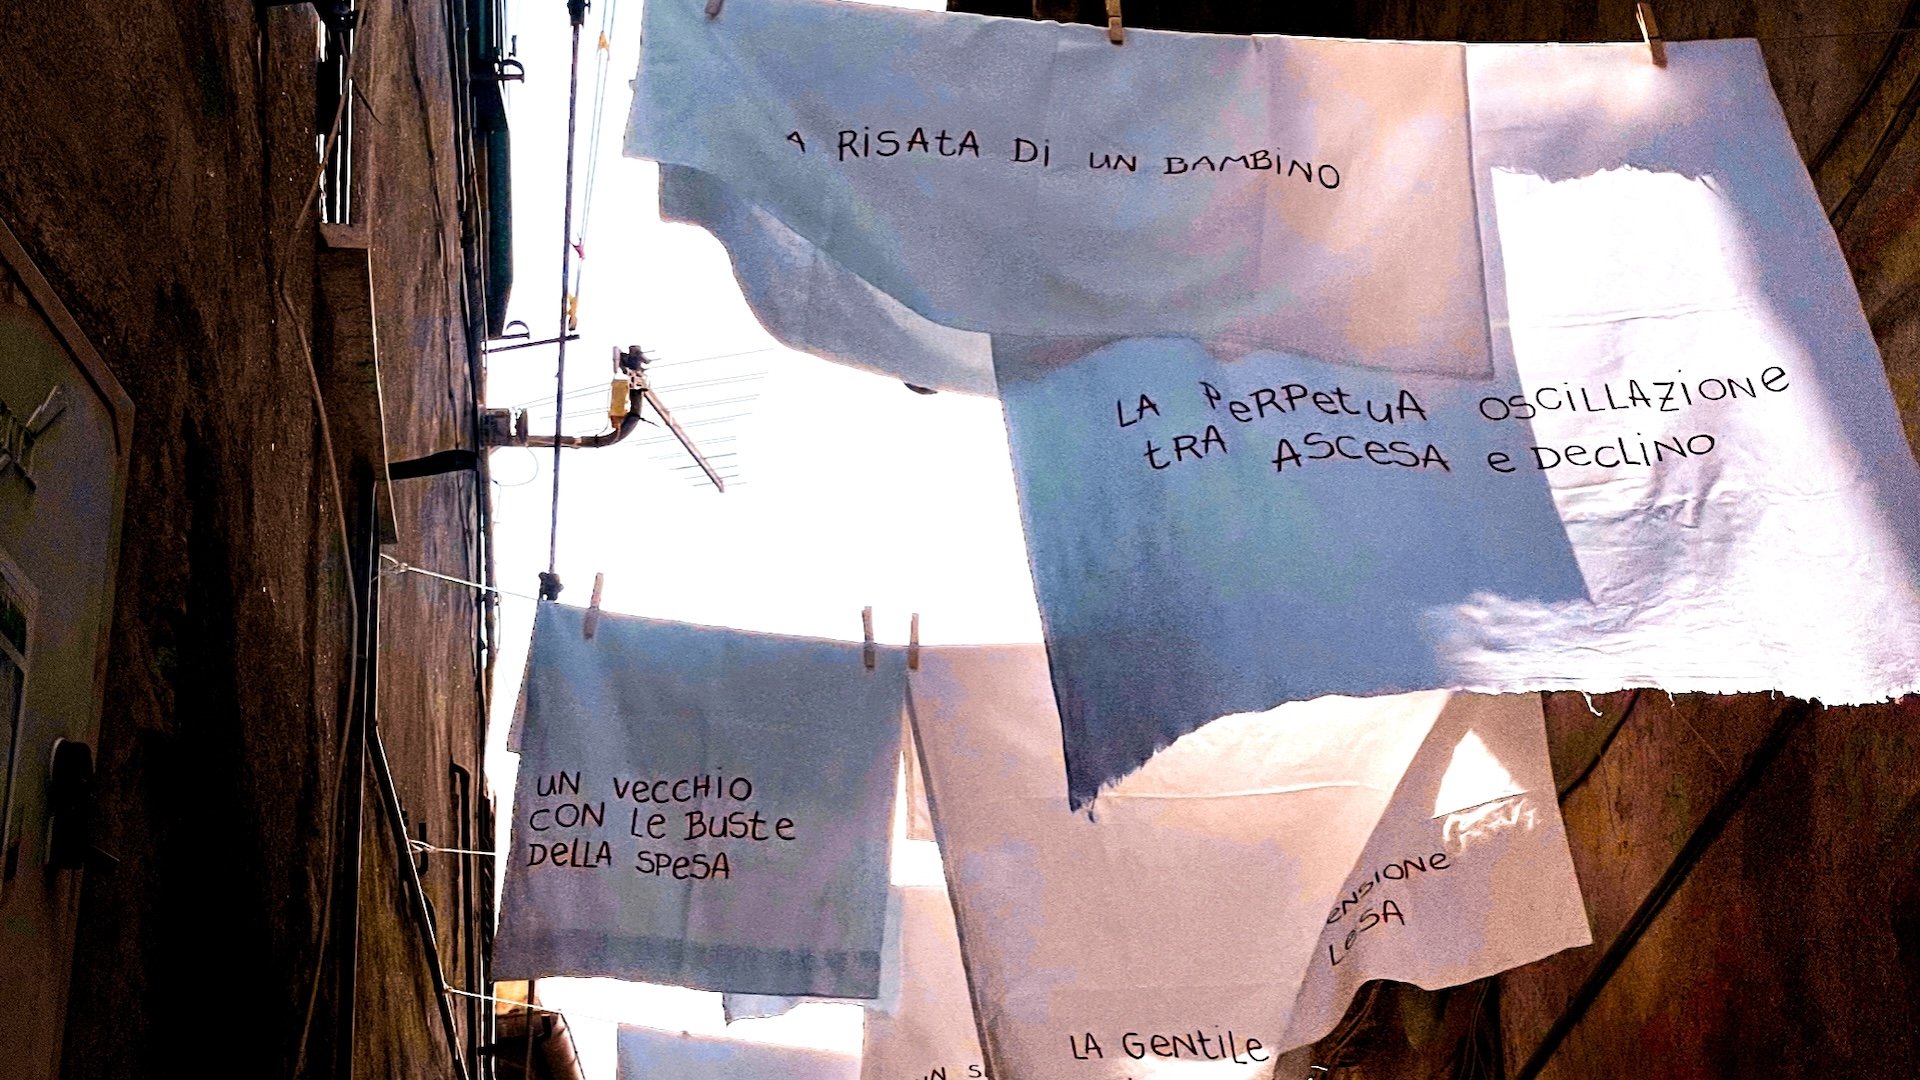 A RISATA DI UN BAMBINO
LA PERPETUA OSCILLAZIONE
TRA ASCESA E DECLINO
UN VECCHIO
CON LE BUSTE
DELLA SPESA
ENSIONE
LESA
LA GENTILE
UN S